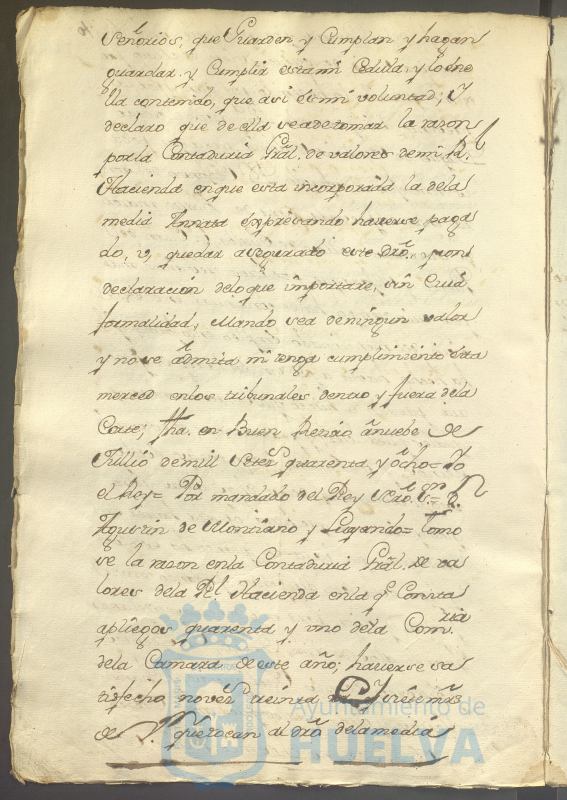 Señorios, que Guarden y Cumplan y hagan
guardar y Cumplir esta mi Cedula, y lo ene
lla contenido, que asi es mi voluntad; Y
declaro que de ella se a de tomar la razon
por la Contaduria Gral. de valores de mi Rl.
Hacienda en que esta incorporada la de la
media Annata expresando haverse paga
do, v, quedar asegurado este Dro. con
declaracion de lo que importare, sin Cuia
formalidad, Mando sea de ningun valor
y no se admita ni tenga cumplimiento esta
merced en los tribunales dentro y fuera de la
Corte; fha. en Buen Retiro a nuebe de
Jullio de mill Setez. quarenta y ocho= Yo
el Rey= Por mandado del Rey nro. Sr.= D.
Agustin de Montiano y Luyando= Tomo
se la razon en la Contaduria Gral. de va
lores de la Rl. Hacienda en la q. Consta
a pliegos quarenta y uno de la Com.ria
de la Camara de este año; haverse sa
tisfecho novez. treinta
de que tocan al Dro. de la media
Ayuntamiento de
HUELVA